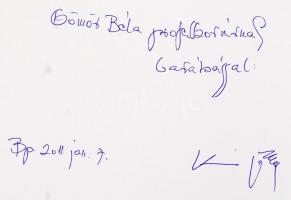 Gömör Béla professzornak
barátsággal:
Bp. 2011 jan. 7.